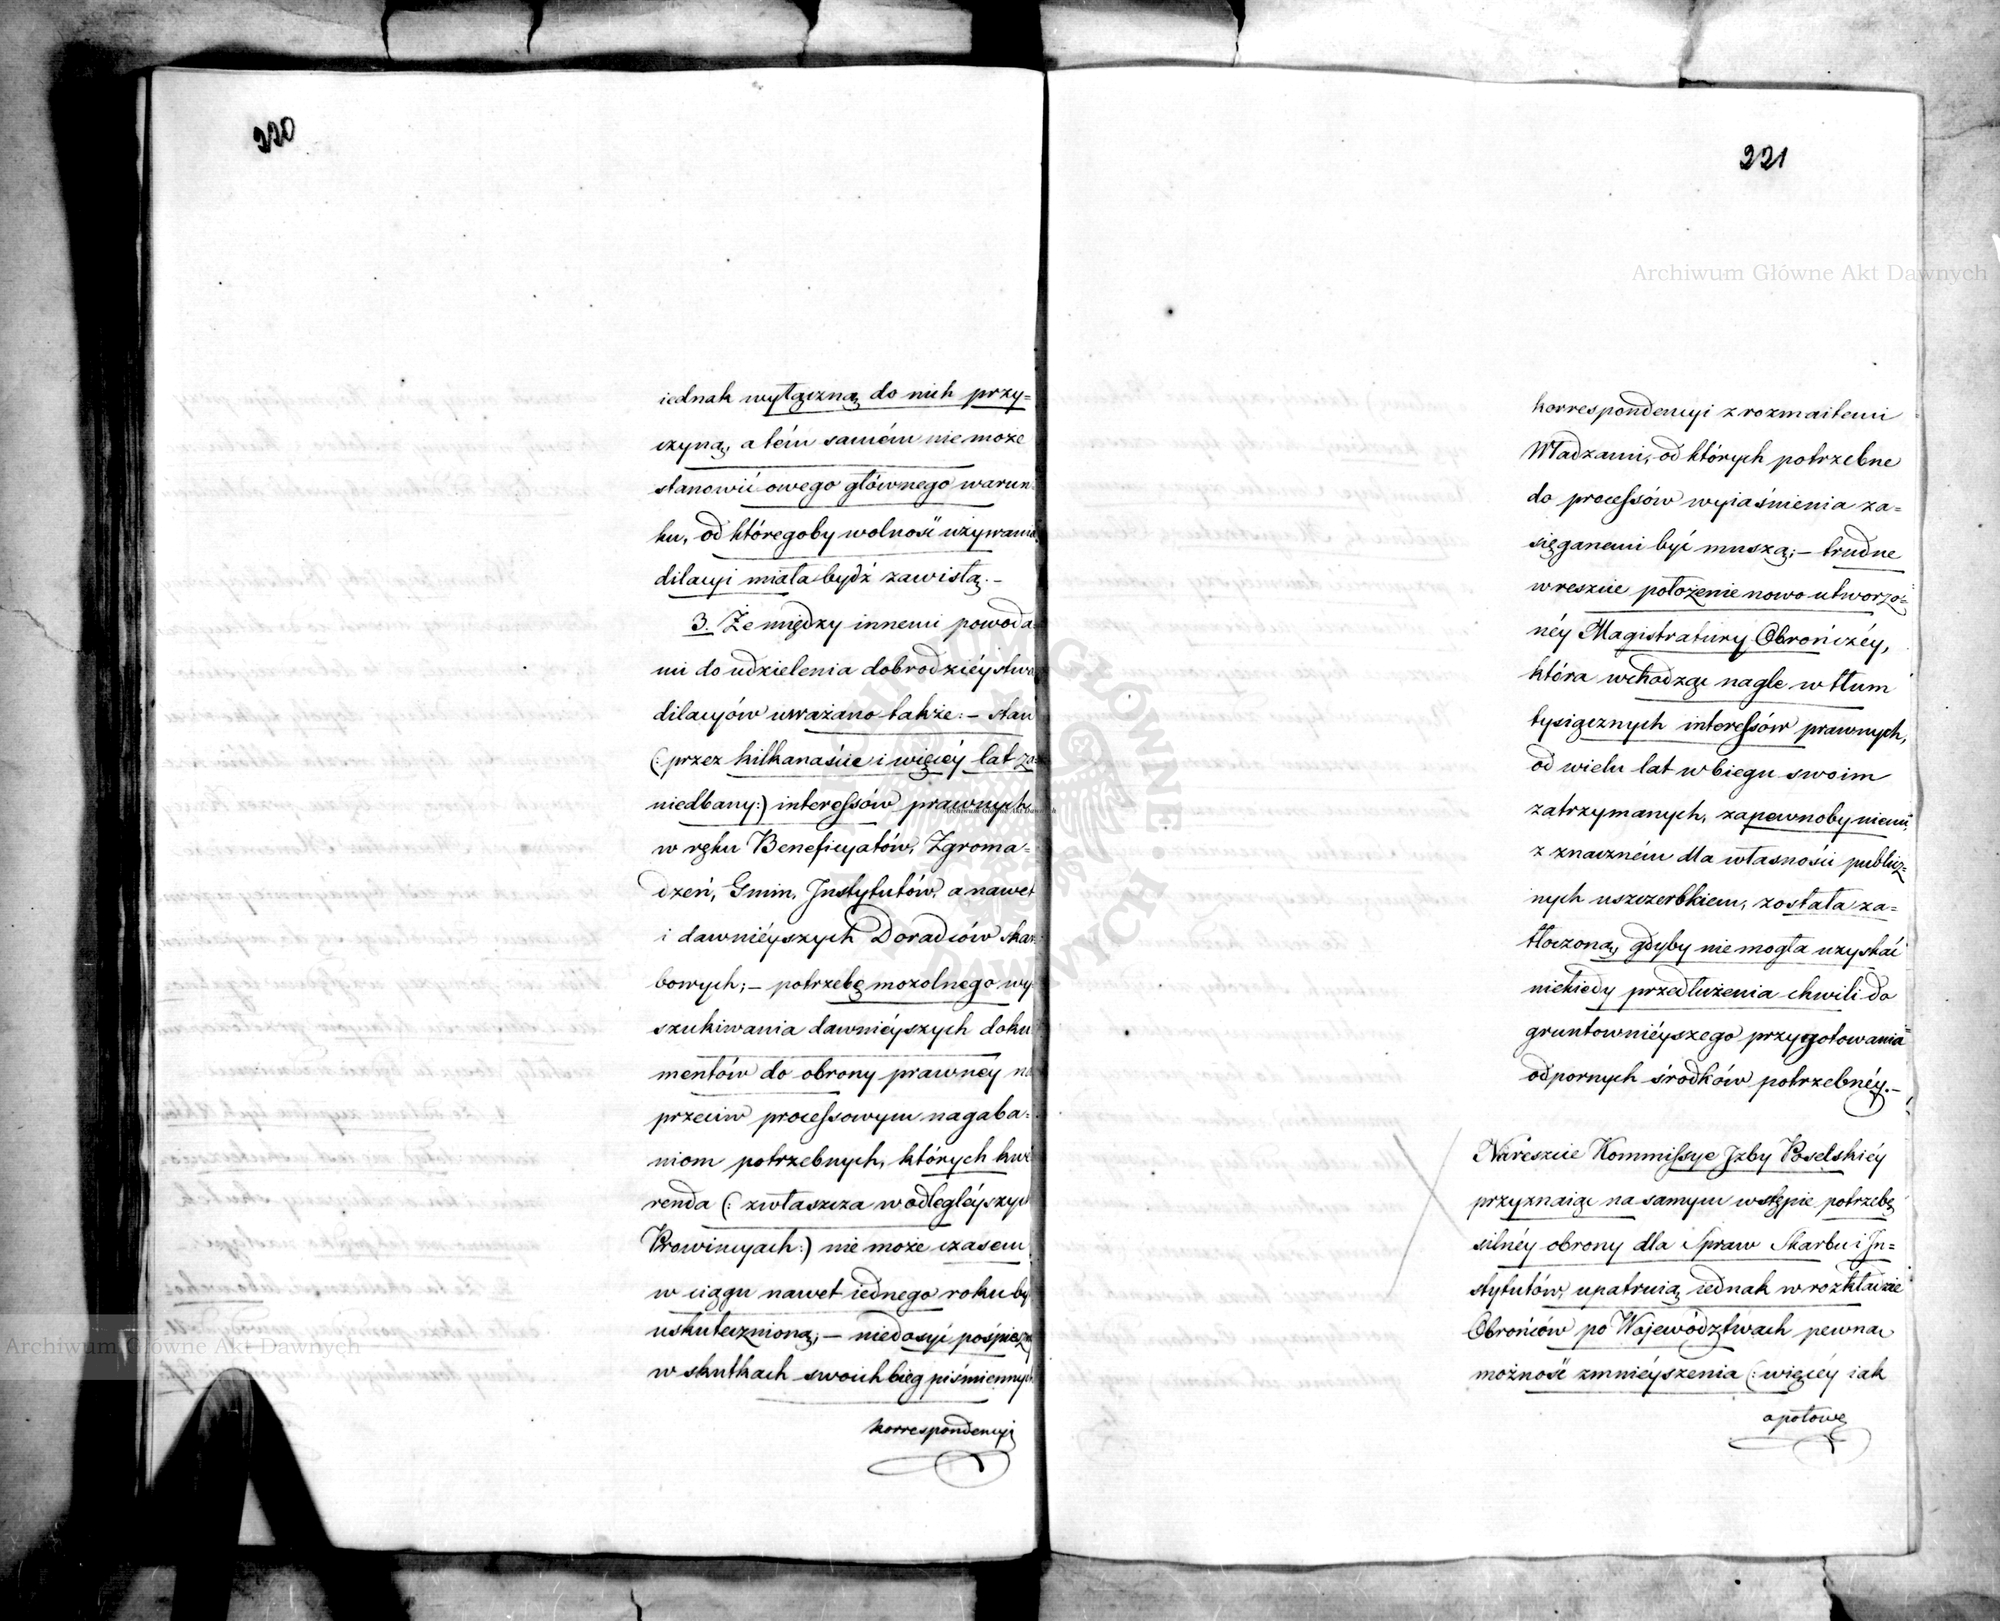 220
iednak wyłączną do nich przy=
czyną, a tém samém nie może
stanowić owego głównego warun=
ku, od któregoby wolność używania
dilacyi miała bydź zawisłą.—
3. Że między innemi powoda=
mi do udzielenia dobrodziéystwa
dilacyów uważano także:— stan
(: przez kilkanaście i więcéy lat za=
niedbany:) interessów prawnych
w ręku Beneficyatów, Zgroma=
dzeń, Gmin, Instytutów, a nawet
i dawniéyszych Doradców skar=
bowych;— potrzebę mozolnego wy
szukiwania dawniéyszych doku
mentów do obrony prawnéy na
przeciw processowym nagaba=
niom potrzebnych, których kwe
renda (: zwłaszcza w odległéyszych
Prowincyach:) nie może czasem
w ciągu nawet iednego roku by
uskutecznioną;— niedosyć pośpieszny
w skutkach swoich bieg piśmiennych
korrespondencyi
221
korrespondencyi z rozmaitemi
Władzami, od których potrzebne
do processów wyiaśnienia za=
sięganemi być muszą;— trudne
wreszcie położenie nowo utworzo=
néy Magistratury Obrończéy,
która wchodząc nagle w tłum
tysiącznych interessów prawnych,
od wielu lat w biegu swoim
zatrzymanych, zapewnoby niemi,
z znaczném dla własności publicz=
nych uszczerbkiem, została za=
tłoczoną, gdyby nie mogła uzyskać
niekiedy przedłużenia chwili do
gruntowniéyszego przygotowania
odpornych środków potrzebnéy.—
Nareszcie Kommissye Izby Poselskiéy
przyznaiąc na samym wstępie potrzebę
silnéy obrony dla Spraw Skarbu i In=
stytutów, upatruią iednak w rozkładzie
Obrońców po Województwach pewną
możność zmniéyszenia (: więcéy iak
o połowę
Archiwum Główne Akt Dawnych
Archiwum Główne Akt Dawnych
Archiwum Główne Akt Dawnych